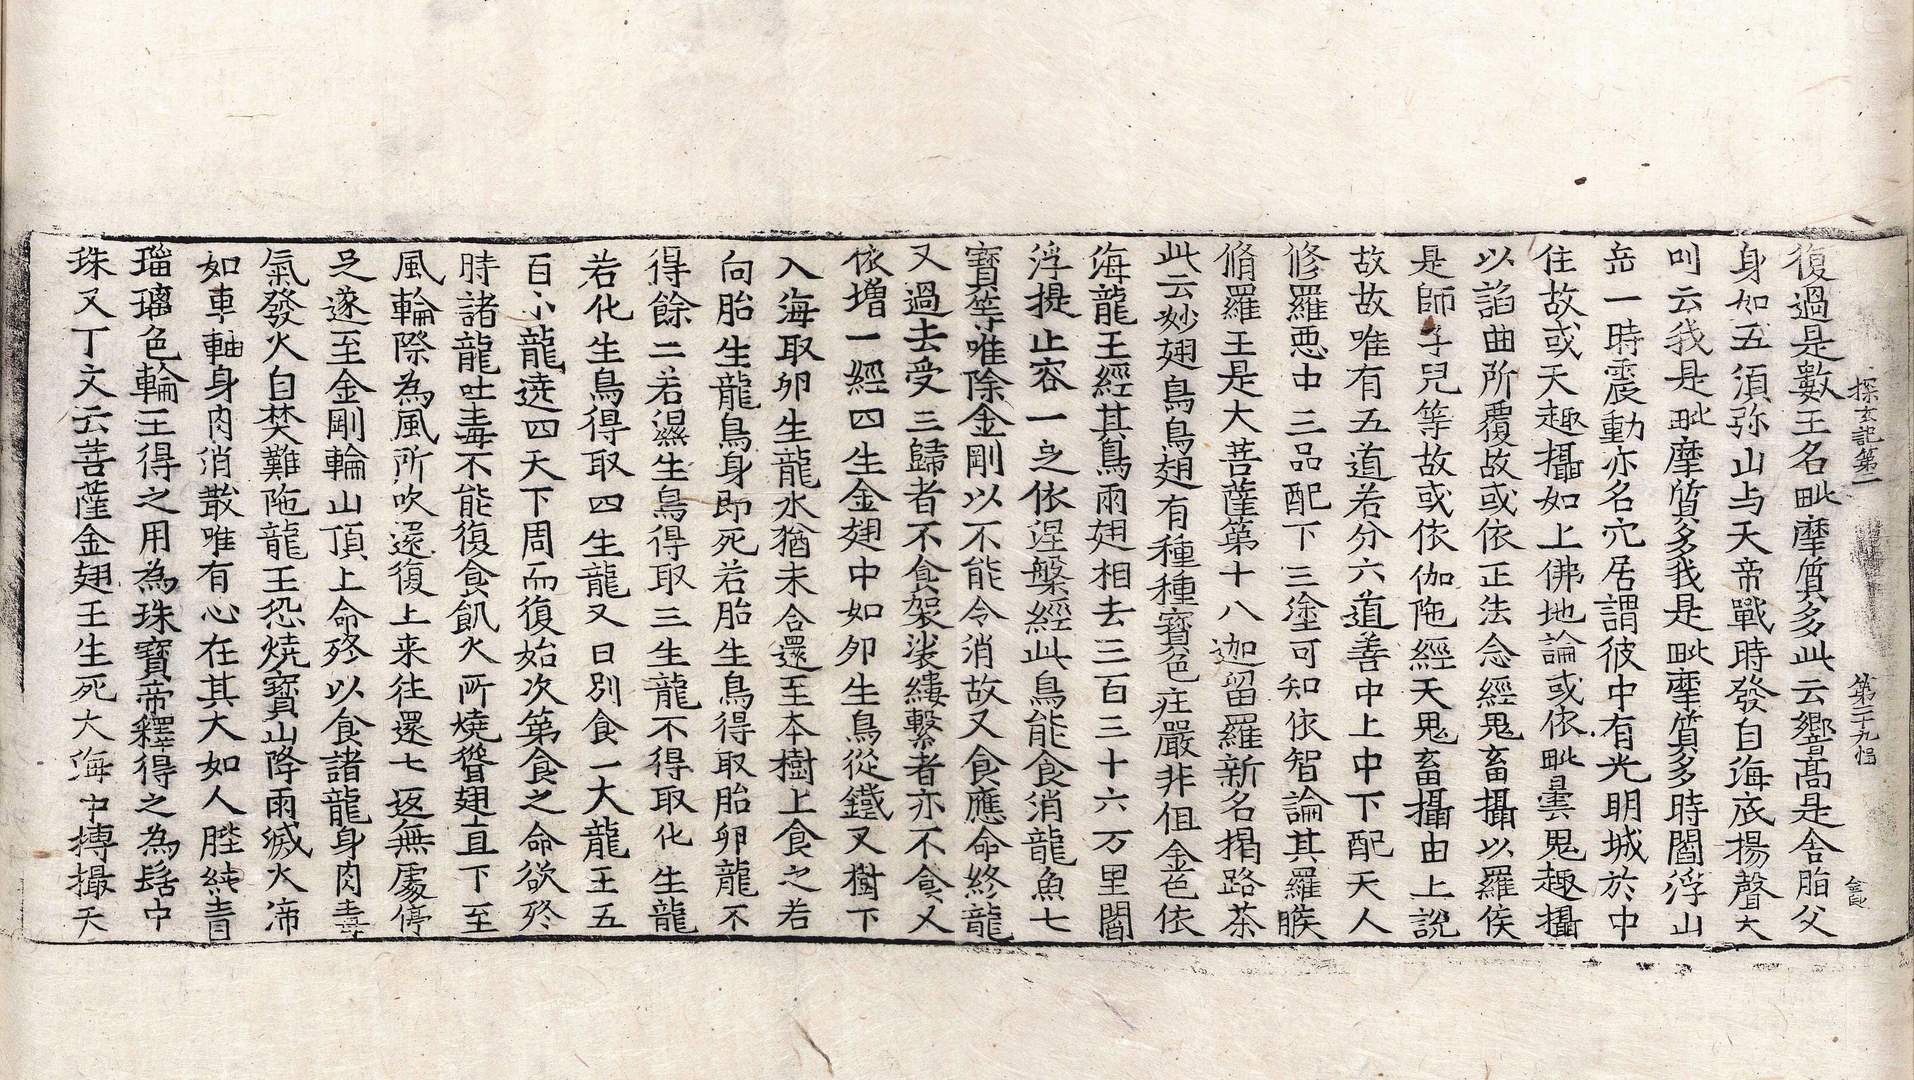 探玄記第二　第二十九幅　食
復過是數王名毗摩質多此云響高是舍脂父
身如五須弥山与天帝戰時發自海底揚聲大
叫云我是毗摩質多我是毗摩質多時閻浮山
岳一時震動亦名穴居謂彼中有光明城於中
住故或天趣攝如上佛地論或依毗曇鬼趣攝
以諂曲所覆故或依正法念經鬼畜攝以羅侯
是師子兒等故或依伽陁經天鬼畜攝由上說
故故唯有五道若分六道善中上中下配天人
修羅悪中三品配下三塗可知依智論其羅睺
脩羅王是大菩薩第十八迦留羅新名揭路茶
此云妙翅鳥鳥翅有種種寶色庄嚴非但金色依
海龍王經其鳥兩翅相去三百三十六万里閻
浮提止容一足依涅槃經此鳥能食消龍魚七
寶等唯除金剛以不能令消故又食應命終龍
又過去受三歸者不食袈裟縷繫者亦不食又
依増一經四生金翅中如卵生鳥從鐵叉樹下
入海取卵生龍水猶未合還至本樹上食之若
向胎生龍鳥身即死若胎生鳥得取胎卵龍不
得餘二若濕生鳥得取三生龍不得取化生龍
若化生鳥得取四生龍又日別食一大龍王五
百小龍遶四天下周而復始次第食之命欲终
時諸龍吐毒不能復食飢火所燒聳翅直下至
風輪際為風所吹還復上来往還七返無處停
足遂至金剛輪山頂上命终以食諸龍身肉毒
氣發火自焚難陁龍王恐燒寶山降雨滅火渧
如車軸身肉消散唯有心在其大如人𦜝純青
瑠璃色輪王得之用為珠寶帝釋得之為髻中
珠又丁文云菩薩金翅王生死大海中搏撮天